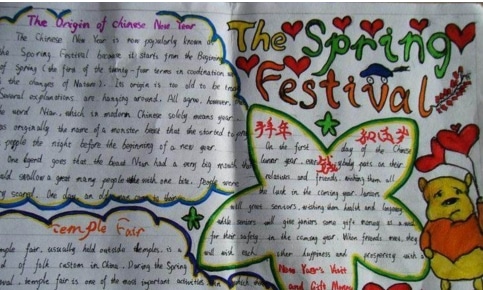 The Origin of Chinese New Year
The Chinese New Year is now popularly known as
the Sporing Festival because it starts from the Beginning
of Spring (the first of the twenty-four terms in coordination with
the changes of Nature). Its origin is too old to be traced
Several explanations are hanging around. All agree, however, that
the word Nian, which in modern Chinese solely means year
was originally the name of a monster beast that started to prey
people the night before the beginning of a new year.
One legend goes that the beast Nian had a very big mouth that
would swallow a great many people with one bite. People were
very scared. One day, an old man came to their
Temple Fair
temple fair, usually held outside temples, is a
kind of folk custom in China. During the Spring
Festival, temple fair is one of the most important activities in which
The Spring
Festival
羊年
On the first day of the Chinese
lunar year, everybody puts on their
relatives and friends, wishing them all
the luck in the coming year. Juniors
will greet seniors, wishing them health and longevity
while seniors will give juniors some gift money as a wish
for their safety in the coming year. When friends meet, they
will wish each other happiness and prosperity with a
New Year's Visit
and Gift Money